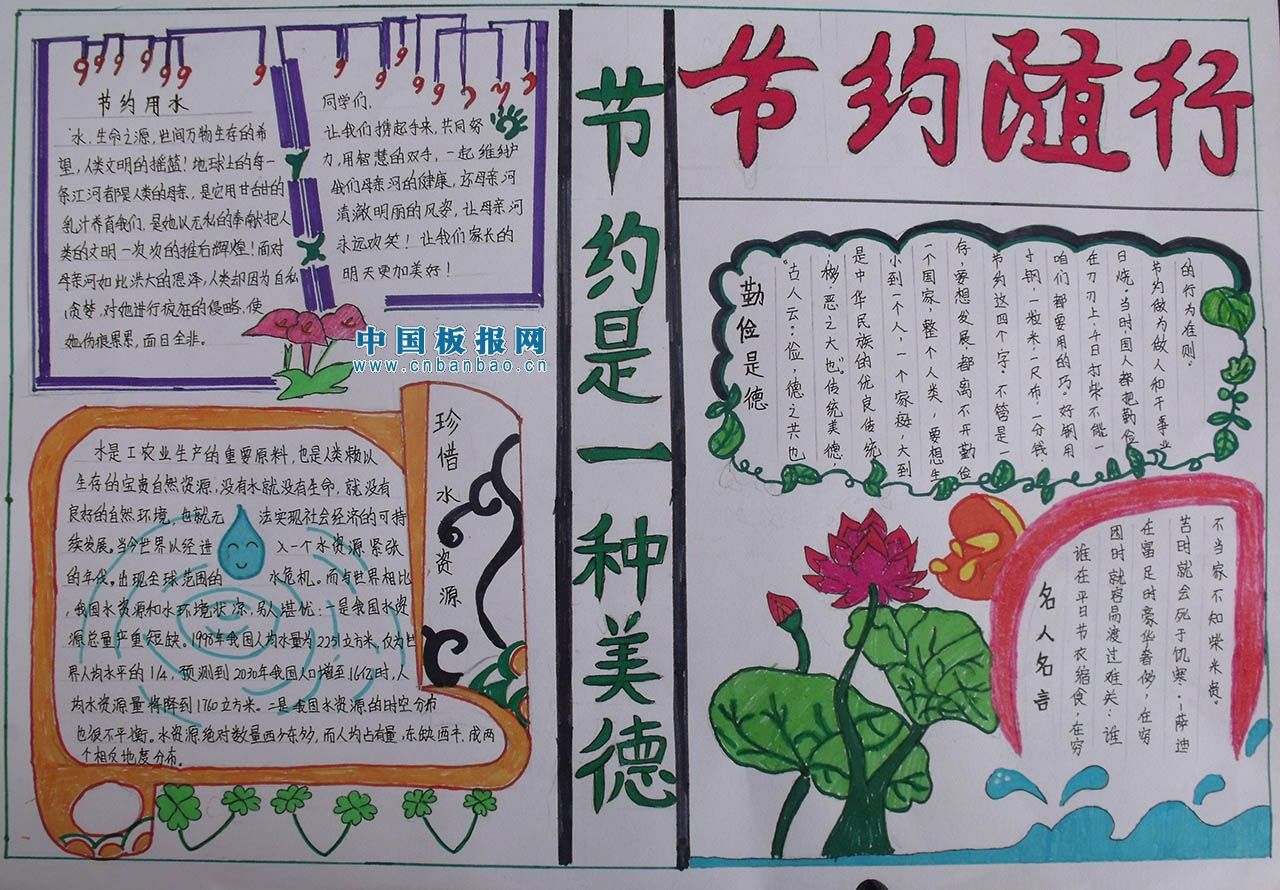 节约随行
节约是一种美德
节约用水
水，生命之源，世间万物生存的希
望，人类文明的摇篮！地球上的每一
条江河都是人类的母亲，是它用甘甜的
乳汁养育我们，是她以无私的奉献把人
类的文明一次次的推右辉煌！面对
母亲河如此洪大的恩泽，人类却因为自私
贪婪，对她进行疯狂的侵略，使
她伤痕累累，面目全非。
同学们，
让我们携起手来，共同努
力，用智慧的双手，一起维护
我们母亲河的健康，还母亲河
清澈明丽的风姿，让母亲河
永远欢笑！让我们家长的
明天更加美好！
中国板报网
www.cnbanbao.cn
珍借水资源
水是工农业生产的重要原料，也是人类赖以
生存的宝贵自然资源，没有水就没有生命，就没有
良好的自然环境，也就无法实现社会经济的可持
续发展。当今世界以经进入一个水资源紧张
的年代。出现全球范围的水危机。而与世界相比
，我国水资源和水环境状凉，另人堪忧：一是我国水资
源总量严重短缺。1998年我国人均水量为2251立方米，仅为世
界人均水平的1/4。预测到2030年我国人口增至16亿时，人
均水资源量将降到1760立方米。二是我国水资源的时空分布
也很不平衡。水资源绝对数量西少东多，而人均占有量，东缺西平，成两
个相反地度分布。
勤俭是德
“古人云：俭，德之共也
，侈，恶之大也。”传统美德，
是中华民族的优良传统
小到一个人，一个家庭，大到
一个国家，整个人类，要想生
存，要想发展，都离不开勤俭
节约这四个字，不管是一
寸钢，一粒米，一尺布，一分钱，
咱们都要用的巧。好钢用
在刀刃上，千日打柴不能一
日烧。当时，国人都把勤俭
节约做为做人和干事业
的行为准则。
名人名言
谁在平日节衣缩食，在穷
困时就容易渡过难关；谁
在富足时豪华奢侈，在穷
苦时就会死于饥寒。——萨迪
不当家不知柴米贵。